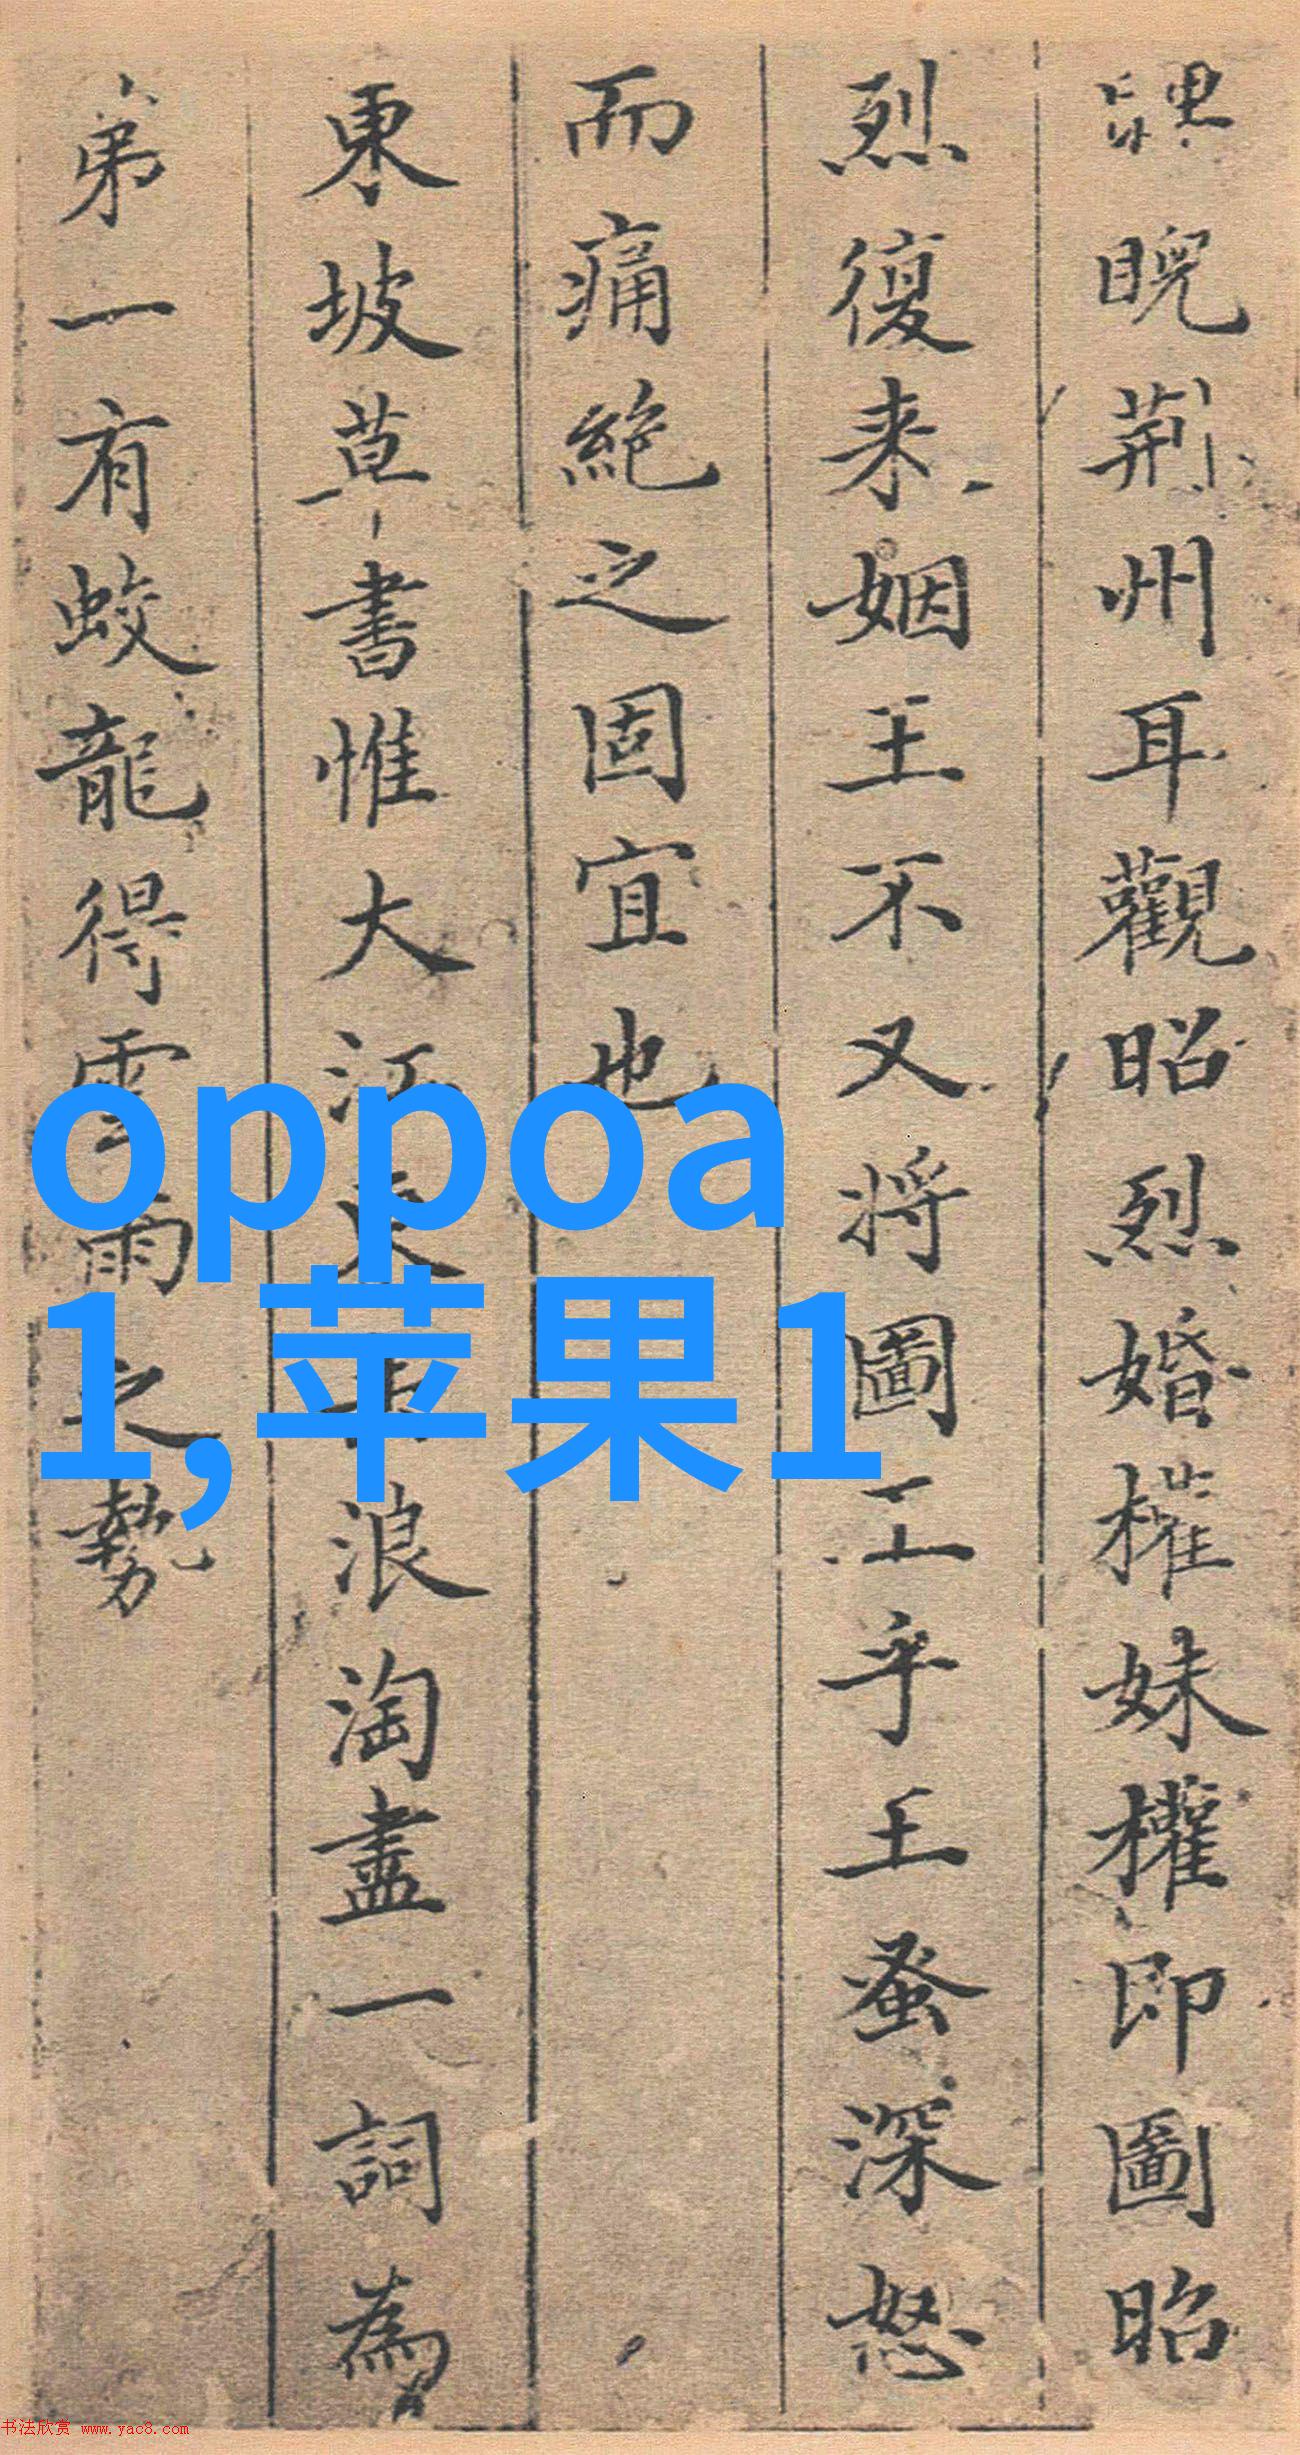 睨荆州耳觀昭烈婚權妹權即圖昭
烈復来姻王王不又将圖王乎王蚤深怒
而痛絶之固宜也
東坡草書惟大江東浪淘盡一詞為
弟一有蛟龍得雲雨之勢
oppoa
1,苹果1
书法欣赏 www.yac8.com